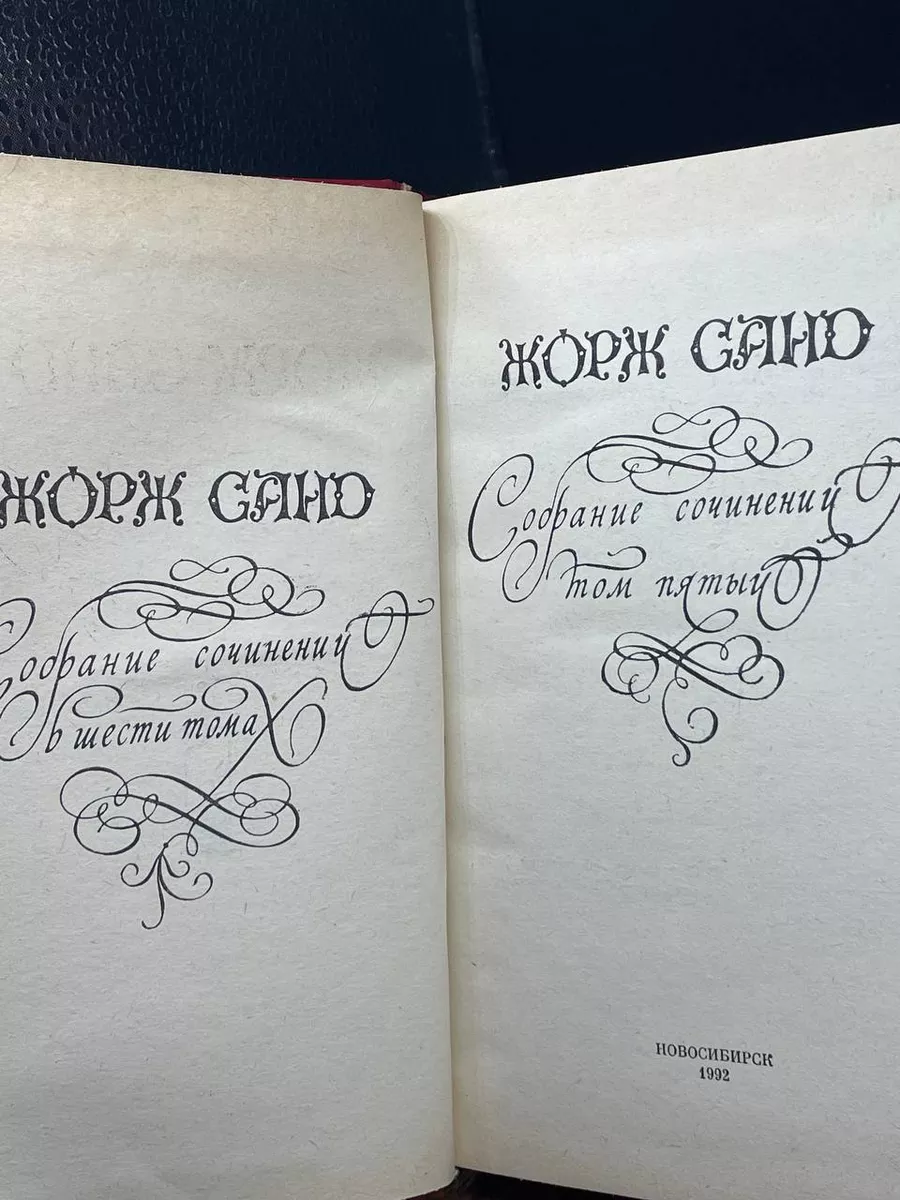 ЖОРЖ САНД
Собрание сочинений
в шести томах
ЖОРЖ САНД
Собрание сочинений
том пятый
НОВОСИБИРСК
1992